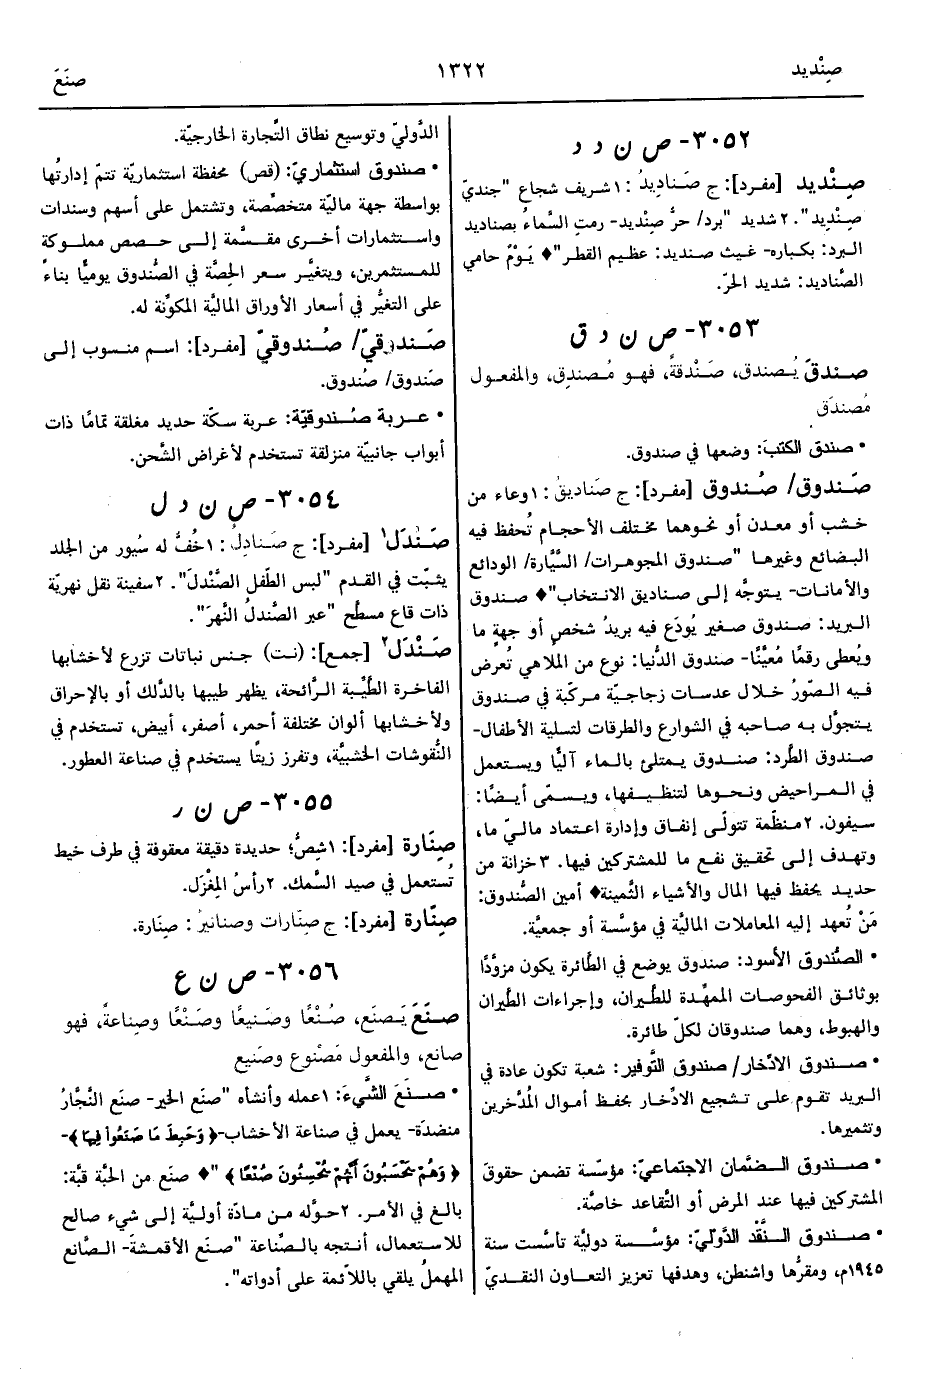 صِنْديد
١٣٢٢
صنَعَ
٣٠٥٢- ص ن د د
صِنْديد [مفرد]: ج صَناديدُ: ١شريف شجاع "جنديّ
صِنْديد". ٢ شديد "برد/ حرُّ صِنْديد- رمتِ السَّماءُ بصناديد
البرد: بكباره- غيث صنديد: عظيم القطر"♦ يَوْمٌ حامي
الصَّناديد: شديد الحرّ.
٣٠٥٣- ص ن د ق
صندقَ يُصندق، صَنْدقةً، فهو مُصندِق، والمفعول
مُصندَق
• صندق الكتبَ: وضعها في صندوق.
صَندوق/ صُندوق [مفرد]: ج صَناديقُ: ١وعاء من
خشب أو معدن أو نحوهما مختلف الأحجام تُحفظ فيه
البضائع وغيرها "صندوق المجوهرات/ السَّيَّارة/ الودائع
والأمانات- يتوجَّه إلى صناديق الانتخاب"♦ صندوق
البريد: صندوق صغير يُودَع فيه بريدُ شخصٍ أو جهةٍ ما
ويُعطى رقمًا مُعيَّنًا- صندوق الدُّنيا: نوع من الملاهي تُعرض
فيه الصّورُ خلال عدسات زجاجيّة مركّبة في صندوق
يتجوَّل به صاحبه في الشوارع والطرقات لتسلية الأطفال-
صندوق الطَّرد: صندوق يمتلئ بالماء آليًّا ويستعمل
في المراحيض ونحوها لتنظيفها، ويسمّى أيضًا:
سيفون. ٢منظَّمة تتولَّى إنفاق وإدارة اعتماد ماليّ ما،
وتهدف إلى تحقيق نفع ما للمشتركين فيها. ٣خزانة من
حديد يحفظ فيها المال والأشياء الثَّمينة♦ أمين الصُّندوق:
مَنْ تُعهد إليه المعاملات الماليَّة في مؤسَّسة أو جمعيَّة.
• الصُّندوق الأسود: صندوق يوضع في الطَّائرة يكون مزوَّدًا
بوثائق الفحوصات الممهِّدة للطَّيران، وإجراءات الطَّيران
والهبوط، وهما صندوقان لكلّ طائرة.
• صندوق الادِّخار/ صندوق التَّوفير: شعبة تكون عادة في
البريد تقوم على تشجيع الادِّخار بحفظ أموال المدَّخرين
وتثميرها.
• صندوق الضَّمان الاجتماعيّ: مؤسَّسة تضمن حقوقَ
المشتركين فيها عند المرض أو التَّقاعد خاصَّة.
• صندوق النَّقْد الدَّوليّ: مؤسَّسة دوليَّة تأسَّست سنة
١٩٤٥م، ومقرُّها واشنطن، وهدفها تعزيز التعاون النقديّ
الدَّوليّ وتوسيع نطاق التِّجارة الخارجيّة.
• صندوق استثماريّ: (قص) محفظة استثماريّة تتمّ إدارتُها
بواسطة جهة ماليّة متخصّصة، وتشتمل على أسهم وسندات
واستثمارات أخرى مقسَّمة إلى حصص مملوكة
للمستثمرين، ويتغيَّر سعر الحصَّة في الصُّندوق يوميًّا بناءً
على التغيُّر في أسعار الأوراق الماليَّة المكوِّنة له.
صَندوقيّ/ صُندوقيّ [مفرد]: اسم منسوب إلى
صَندوق/ صُندوق.
• عربة صُندوقيَّة: عربة سكّة حديد مغلقة تمامًا ذات
أبواب جانبيّة منزلقة تستخدم لأغراض الشَّحن.
٣٠٥٤- ص ن د ل
صَنْدَل١ [مفرد]: ج صَنادِلُ: ١خُفٌّ له سُيور من الجلد
يثبّت في القدم "لبس الطّفل الصَّنْدلَ". ٢سفينة نقل نهريّة
ذات قاع مسطَّح "عبر الصَّندلُ النَّهرَ".
صَنْدَل٢ [جمع]: (نت) جنس نباتات تزرع لأخشابها
الفاخرة الطَّيِّبة الرَّائحة، يظهر طيبها بالدَّلك أو بالإحراق
ولأخشابها ألوان مختلفة أحمر، أصفر، أبيض، تستخدم في
النُّقوشات الخشبيَّة، وتفرز زيتًا يستخدم في صناعة العطور.
٣٠٥٥- ص ن ر
صِنَارة [مفرد]: ١شِصٌّ؛ حديدة دقيقة معقوفة في طرف خيط
تُستعمل في صيد السَّمك. ٢رأسُ المِغْزَل.
صِنَّارة [مفرد]: ج صِنَّارات وصنانيرُ: صِنَارة.
٣٠٥٦- ص ن ع
صنَعَ يَصنَع، صُنْعًا وصَنيعًا وصَنْعًا وصِناعةً، فهو
صانع، والمفعول مَصْنوع وصَنيع
• صنَعَ الشَّيءَ: ١عمله وأنشأه "صنَع الخير- صنَع النَّجَّارُ
منضدة- يعمل في صناعة الأخشاب-﴿وَحَبِطَ مَا صَنَعُوا فِيهَا﴾-
﴿وَهُمْ يَحْسَبُونَ أَنَّهُمْ يُحْسِنُونَ صُنْعًا﴾"♦ صنَع من الحبَّة قبَّة:
بالغ في الأمر. ٢حوَّله من مادَة أوليَّة إلى شيء صالح
للاستعمال، أنتجه بالصِّناعة "صنَع الأقمشةَ- الصَّانع
المهملُ يلقي باللاَّئمة على أدواته".